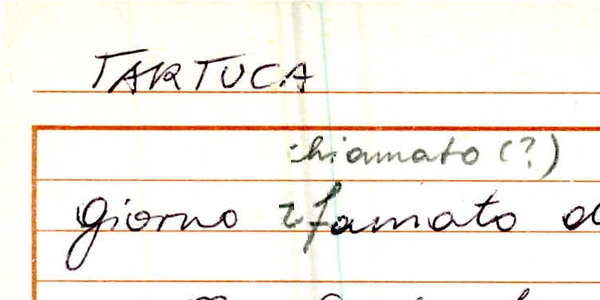 TARTUCA
chiamato (?)
giorno sfamato d